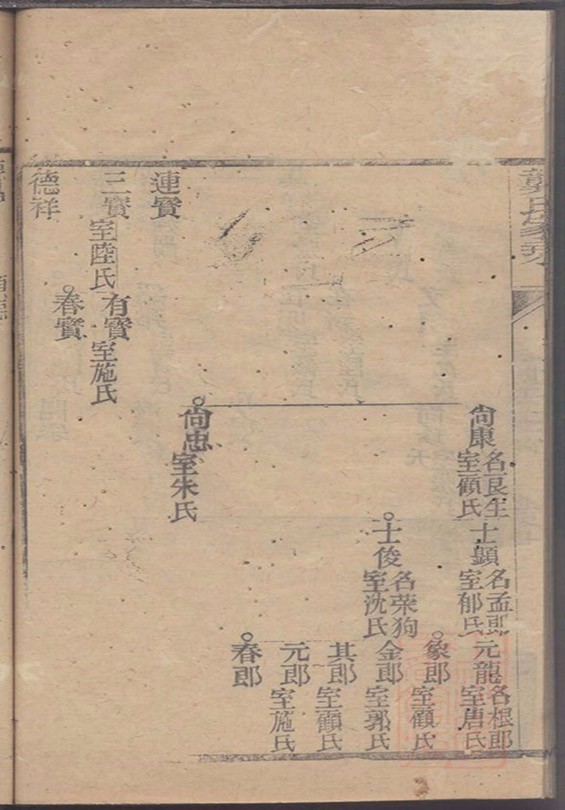 尙康
名良生
室顧氏
士顯
名孟郎
室郁氏
元龍
名根郎
室唐氏
象郎
室顧氏
士俊
名荣狗
室沈氏
金郎
室郭氏
其郎
室顧氏
元郎
室施氏
春郎
尙忠
室朱氏
連寳
三寳
室陸氏
有寳
室施氏
春寳
德祥